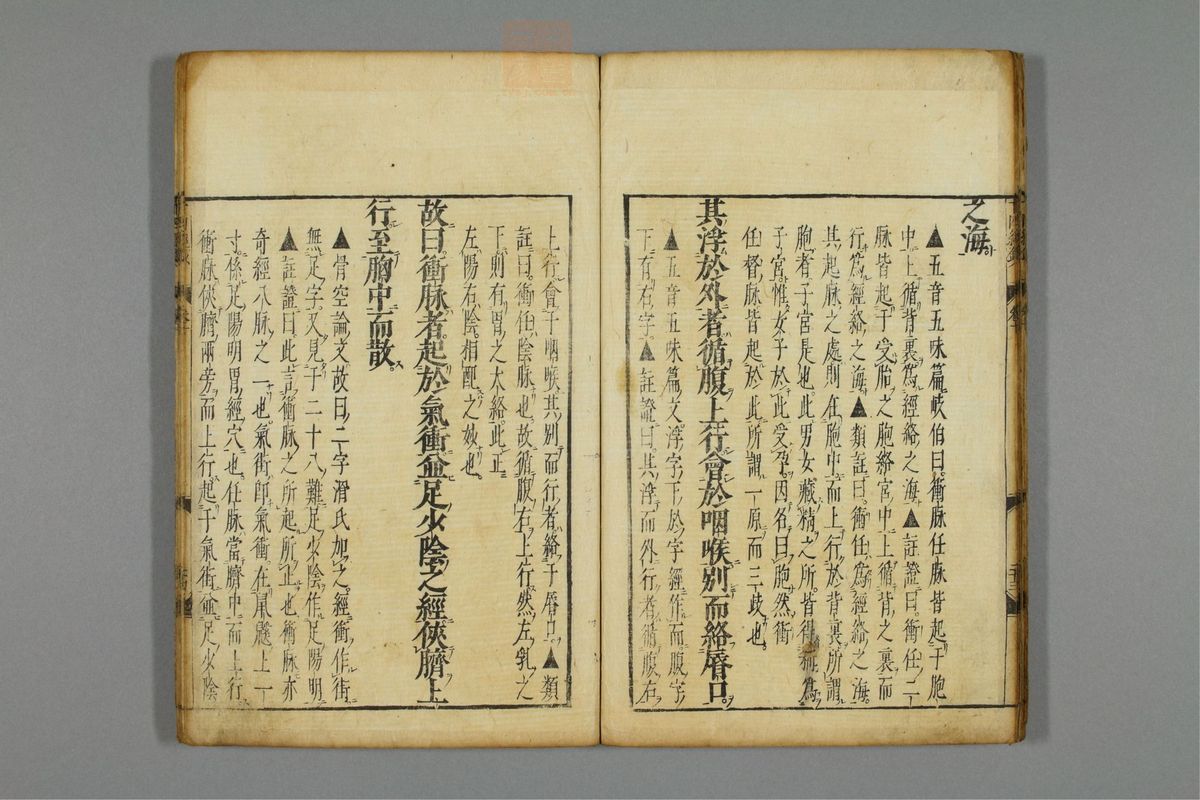 之海
▲五音五味篇岐伯曰衝脉任脉皆起于胞
中上循背裏爲經絡之海▲註證曰衝任二
脉皆起于受胎之胞絡宮中上循背之裏而
行爲經絡之海▲類註曰衝任爲經絡之海
其起脉之處則在胞中而上行於背裏所謂
胞者子宮是也此男女藏精之所皆得稱爲
子宮惟女子於此受孕因名曰胞然衝
任督脉皆起於此所謂一原而三歧也
其浮於外者循腹上行會於咽喉別而絡脣口
▲五音五味篇文浮字下於字經作而腹字
下有右字▲註證曰其浮而外行者循腹右
上行會于咽喉其別而行者絡于脣口▲類
註曰衝任陰脉也故循腹右上行然左乳之
下則有胃之大絡此正
左陽右陰相配之妙也
故曰衝脉者起於氣衝並足少陰之經俠臍上
行至胸中而散
▲骨空論文故曰二字滑氏加之經衝作街
無足字又見于二十八難足少陰作足陽明
▲註證曰此言衝脉之所起所止也衝脉亦
奇經八脉之一也氣街即氣衝在鼠鼷上一
寸係足陽明胃經穴也任脉當臍中而上行
衝脉俠臍兩旁而上行起于氣街並足少陰